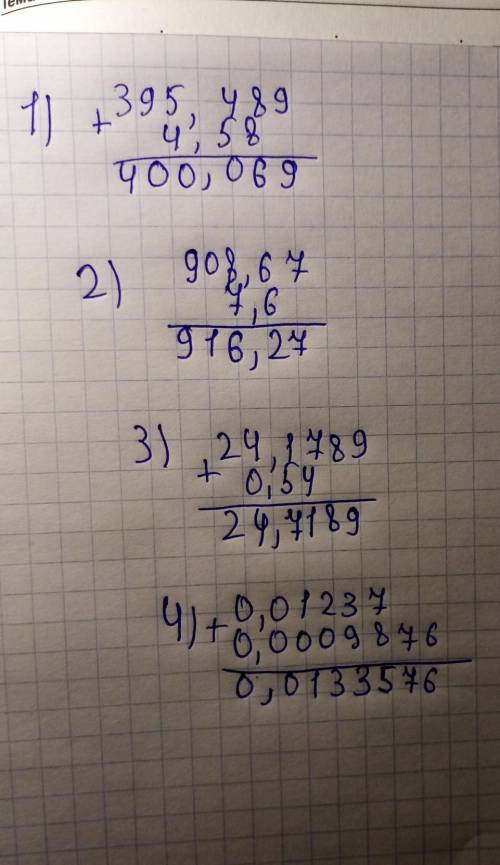 1) + 395,489
4,58
400,069
2) 908,67
7,6
916,27
3) + 24,1789
0,54
24,7189
4) + 0,01237
0,0009876
0,0133576